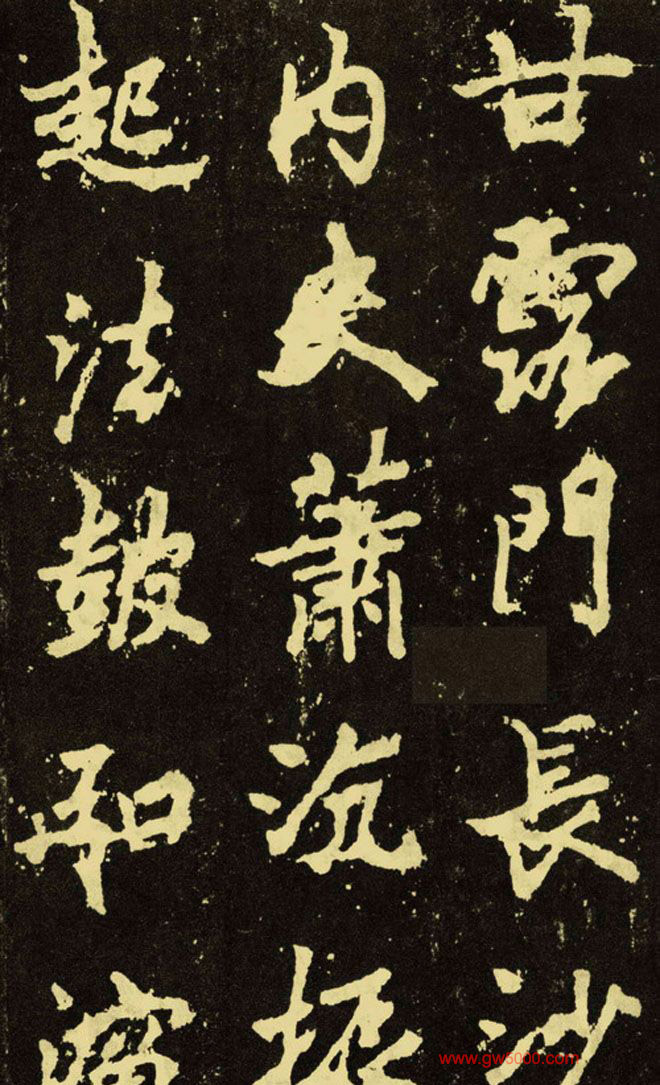 甘露門長沙
内史蕭沆振
起法鼓和
www.gw5000.com